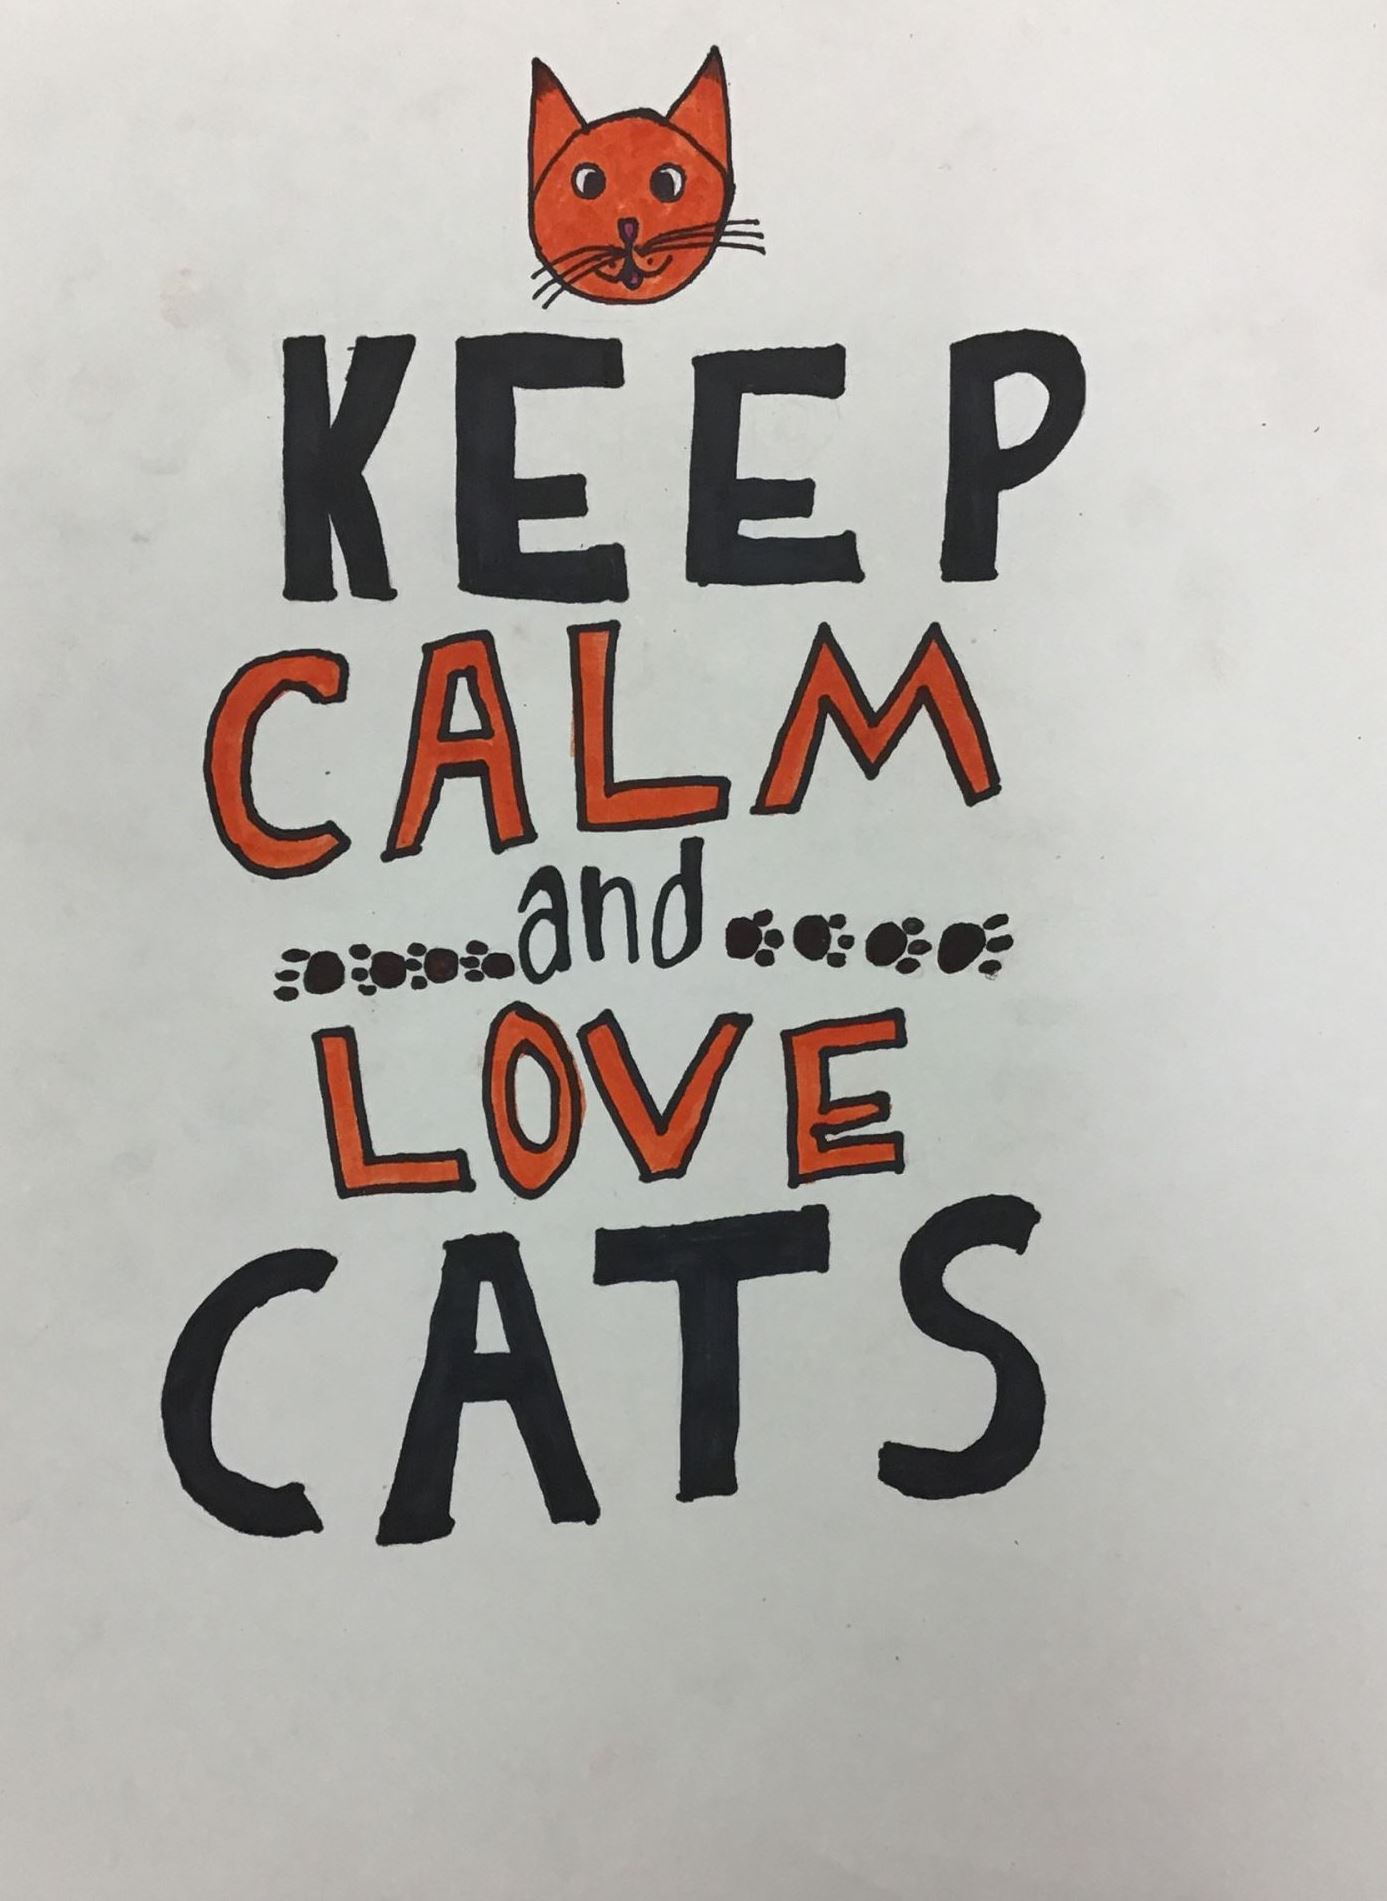 KEEP
CALM
and
LOVE
CATS